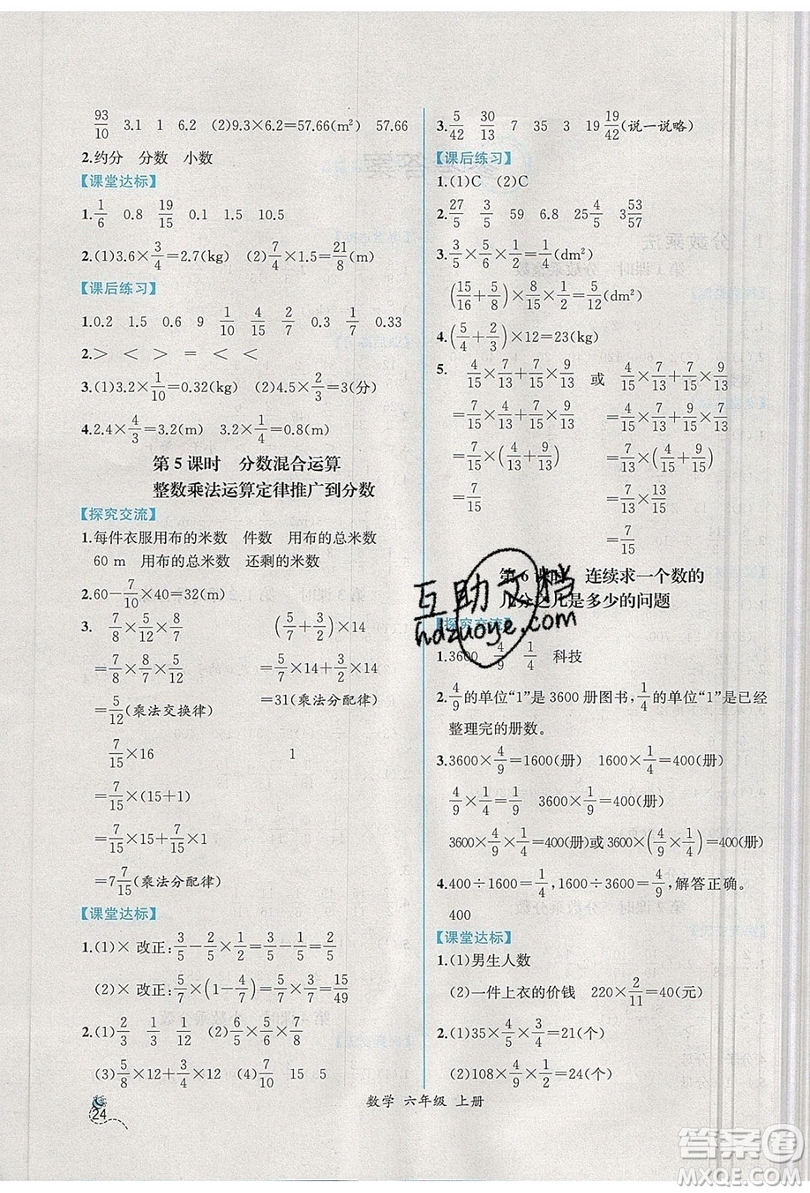 93/10 3.1 1 6.2 (2)9.3×6.2=57.66(m²) 57.66
2.约分 分数 小数
【课堂达标】
1.1/6 0.8 19/15 0.9 0.25 8
2.(1)3.6×3/4=2.7(kg) (2)7/4×1.5=21/8(m)
【课后练习】
1.0.2 1.5 0.6 9 1/10 4/15 7/10 1/3 0.33
2.> < = < <
3.(1)3.2×1/10=0.32(kg) (2)4.5×2/3=3(分)
4.2.4×4/3=3.2(m) 3.2×1/4=0.8(m)
第 5 课时 分数混合运算
整数乘法运算定律推广到分数
【探究交流】
1.每件衣服用布的米数 件数 用布的总米数
60 m 用布的总米数 还剩的米数
2.60-7/10×40=32(m)
3. 7/8×5/7×2/3 (5/7+3/2)×14
=7/8×2/3×5/7 =5/7×14+3/2×14
=5/12(乘法交换律) =31(乘法分配律)
7/15×16 1
=7/15×(15+1)
=7/15×15+7/15×1
=7 7/15(乘法分配律)
【课堂达标】
1.(1)× 改正:3/5-2/5×1/5=3/5-2/25=13/25
(2)× 改正:5/7×(1-4/7)=5/7×3/7=15/49
2.(1)2/3 1/3 1/12 (2)6/5×5/6×7/8
(3)2/15×12+4/5×12 (4)7/10 15 5
3.5/42 30/7 7 35 19 19/42(说一说略)
【课后练习】
1.(1)C (2)C
2.27/5 3/5 2/7 25 4/5 3 53/57
3.3/5×1/2÷1/2=3/5(dm²)
(15/16+5/8)×8/15×1/2=5/12(dm²)
4.(5/4+2/3)×12=23(kg)
5. 4/15×7/13+7/15×9/13 或 4/15×7/13+7/15×9/13
=7/15×4/13+7/15×9/13 =4/15×7/13+9/15×7/13
=7/15×(4/13+9/13) =7/13×(4/15+9/15)
=7/15×1 =7/13×13/15
=7/15 =7/15
第 6 课时 连续求一个数的
几分之几是多少的问题
【探究交流】
1.3600 4/9 1/4 科技
2.4/9的单位“1”是 3600 册图书,1/4的单位“1”是已经
整理完的册数。
3.3600×4/9=1600(册) 1600×1/4=400(册)
4/9×1/4=1/9 3600×1/9=400(册)
3600×4/9×1/4=400(册)或3600×(4/9×1/4)=400(册)
4.400÷1600=1/4,1600÷3600=4/9,解答正确。
400
【课堂达标】
1.(1)男生人数
(2)一件上衣的价钱 220×2/11=40(元)
2.(1)35×4/5×3/4=21(个)
(2)108×4/9×1/2=24(个)
24
数学 六年级 上册
互助文档
hdzuoye.com
答案圈
MXQE.COM